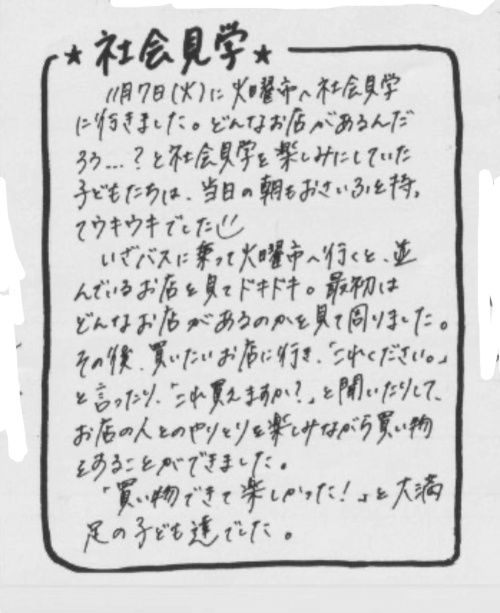 ★社会見学★
11月7日(火)に火曜市へ社会見学
に行きました。どんなお店があるんだ
ろう…?と社会見学を楽しみにしていた
子どもたちは、当日の朝もおさいふを持っ
てウキウキでした
いざバスに乗って火曜市へ行くと、並
んでいるお店を見てドキドキ。最初は
どんなお店があるのかを見て周りました。
その後、買いたいお店に行き、「これください。」
と言ったり、「これ買えますか?」と聞いたりして、
お店の人とのやりとりを楽しみながら買い物
をすることができました。
「買い物できて楽しかった!」と大満
足の子ども達でした。